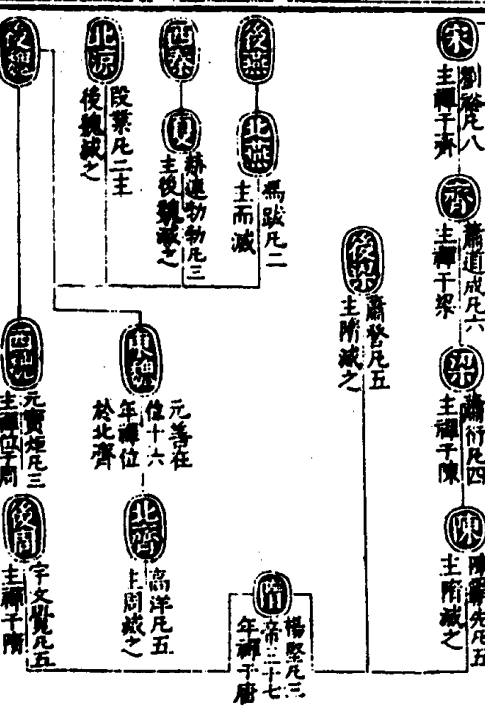 宋
劉裕凡八
主禪于齊
齊
蕭道成凡六
主禪于梁
梁
蕭衍凡四
主禪于陳
陳
陳霸先凡五
主隋滅之
後梁
蕭詧凡五
主隋滅之
後燕
北燕
馮跋凡二
主而滅
西秦
夏
赫連勃勃凡三
主後魏滅之
北涼
段業凡二主
後魏滅之
後魏
東魏
元善在
位十六
年禪位
於北齊
北齊
高洋凡五
主周滅之
西魏
元寶炬凡三
主禪位于周
後周
宇文覺凡五
主禪于隋
隋
楊堅凡三
帝三十七
年禪于唐